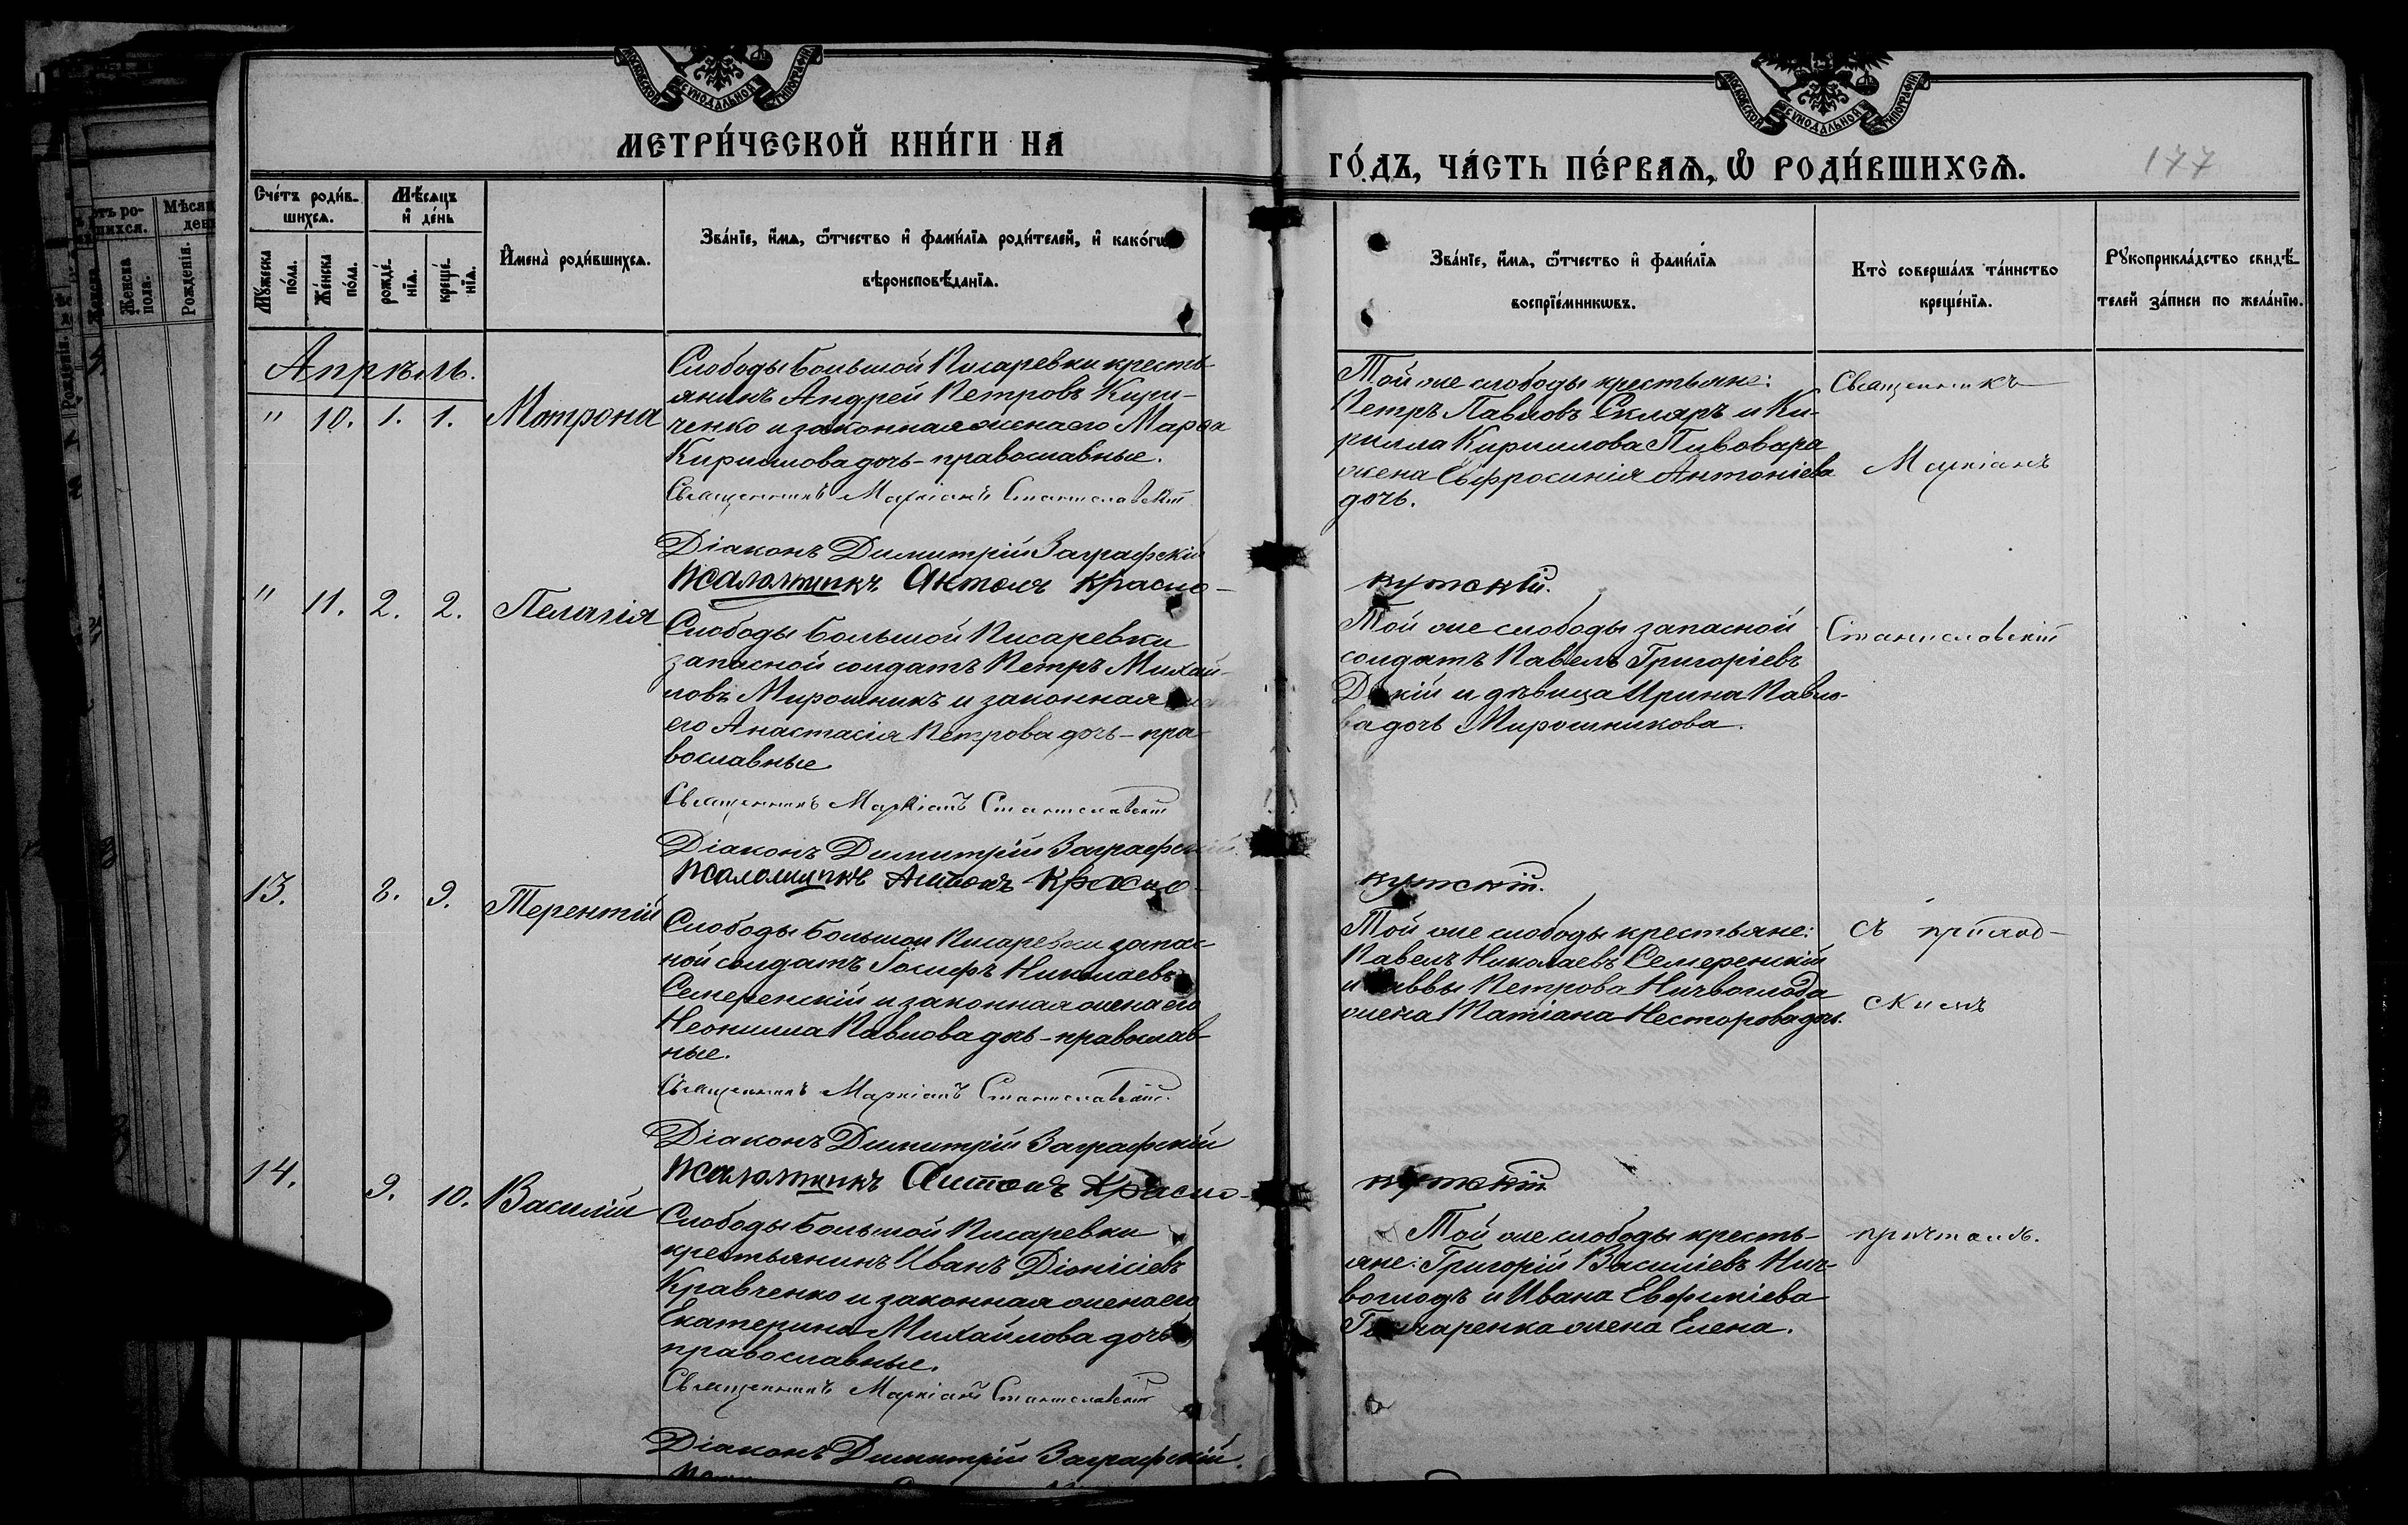 МОСКОВСКОЙ СѴНОДАЛЬНОЙ ТИПОГРАФІИ
МЕТРИ́ЧЕСКОЙ КНИ́ГИ НА
Сче́тъ роди́в-
шихсѧ.
Мѣ́сяцъ
и҆ де́нь
Мꙋ́жеска
по́ла.
Же́нска
по́ла.
рожде́-
нїѧ.
креще́-
нїѧ.
И҆мена̀ роди́вшихсѧ.
Зва́нїе, и҆́мѧ, ѻ҆́тчество и҆ фами́лїѧ роди́телей, и҆ како́гѡ
вѣроисповѣ́данїѧ.
Апрѣль.
" 10. 1. 1. Мотрона
Слободы Большой Писаревки кресть-
янинъ Андрей Петровъ Кири-
ченко и законная жена его Марѳа
Кириллова дочь - православные.
Священникъ Маркіанъ Станиславскій
Діаконъ Димитрій Заграфскій
Псаломщикъ Антонъ Красно-
" 11. 2. 2. Пелагія
Слободы Большой Писаревки
запасной солдатъ Петръ Михай-
ловъ Мирошникъ и законная жена
его Анастасія Петрова дочь - пра-
вославные
Священникъ Маркіанъ Станиславскій
Діаконъ Димитрій Заграфскій
Псаломщикъ Антонъ Красно-
13. 8. 9. Терентій
Слободы Большой Писаревки запас-
ной солдатъ Іосифъ Николаевъ
Семеренскій и законная жена его
Неонилла Павлова дочь - православ-
ные.
Священникъ Маркіанъ Станиславскій.
Діаконъ Димитрій Заграфскій
Псаломщикъ Антонъ Красно-
14. 9. 10. Василій
Слободы Большой Писаревки
крестьянинъ Иванъ Діонисіевъ
Кравченко и законная жена его
Екатерина Михайлова дочь
православные.
Священникъ Маркіанъ Станиславскій
Діаконъ Димитрій Заграфскій.
МОСКОВСКОЙ СѴНОДАЛЬНОЙ ТИПОГРАФІИ
ГО́ДЪ, ЧА́СТЬ ПЕ́РВАѦ, Ѡ҆ РОДИ́ВШИХСѦ.
177
Зва́нїе, и҆́мѧ, ѻ҆́тчество и҆ фами́лїѧ
воспрїе́мникѡвъ.
Кто̀ соверша́лъ та́инство
креще́нїѧ.
Рꙋкоприкла́дство свидѣ́-
телей за́писи по жела́нїю.
Той же слободы крестьяне:
Петръ Павловъ Скляръ и Ки-
рилла Кириллова Пивовара
жена Евфросинія Антоніева
дочь.
Священникъ
Маркіанъ
кутскій.
Той же слободы запасной
солдатъ Павелъ Григоріевъ
Дикій и дѣвица Ирина Павло-
ва дочь Мирошникова.
Станиславскій
кутскій.
Той же слободы крестьяне:
Павелъ Николаевъ Семеренскій
и Саввы Петрова Ничвоглода
жена Татіана Несторова дочь.
съ приход-
скимъ
кутскій
Той же слободы кресть-
яне: Григорій Василіевъ Нич-
воглодъ и Ивана Евфиміева
Гончаренка жена Елена.
причтомъ.